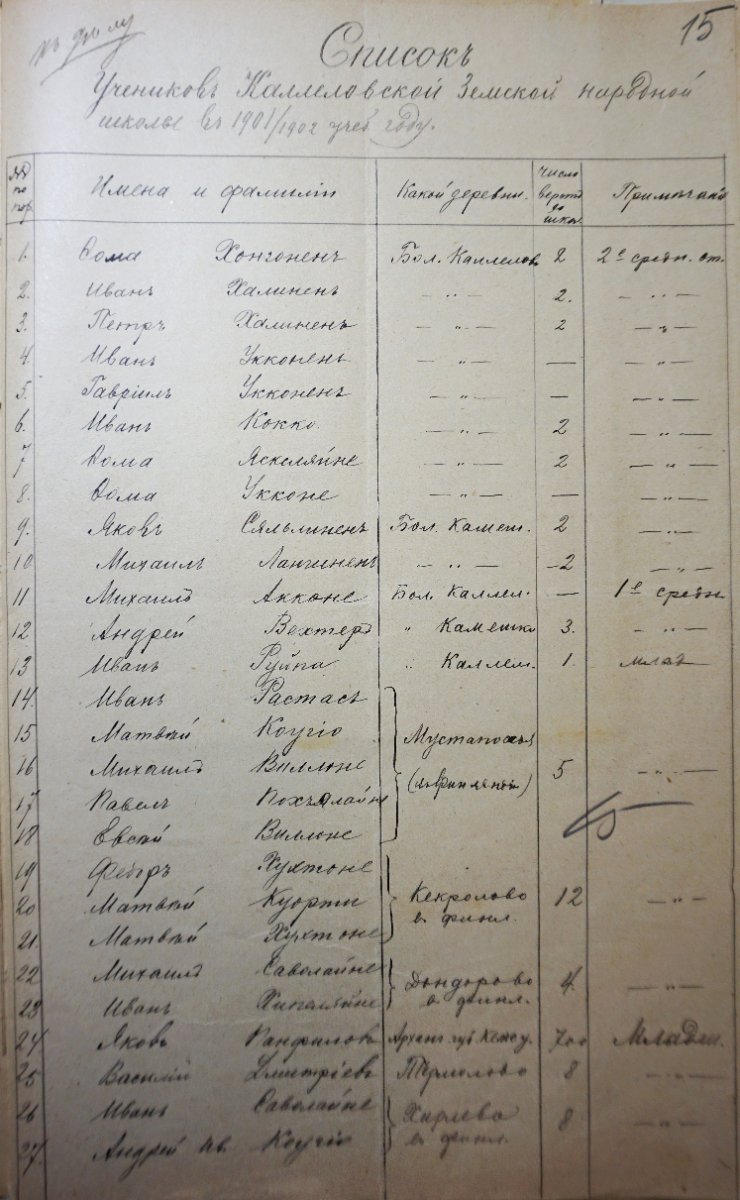 къ дѣлу
15
Списокъ
Учениковъ Каллеловской Земской народной
школы въ 1901/1902 учеб. году.
№№ по пор. Имена и фамиліи Какой деревни. Число верстъ до школ. Примѣчанія
1. Ѳома Хонгоненъ Бол. Каллелов. 2 2е средн. от.
2. Иванъ Халиненъ — „ — 2. — „ —
3. Петръ Халиненъ — „ — 2 — „ —
4. Иванъ Укконенъ — „ — — — „ —
5. Гавріилъ Укконенъ — „ — — — „ —
6. Иванъ Кокко. — „ — 2 — „ —
7 Ѳома Яскеляйне — „ — 2 — „ —
8. Ѳома Укконе — „ — — — „ —
9. Яковъ Сяльлиненъ Бол. Камеш. 2 — „ —
10 Михаилъ Лангиненъ — „ — 2 — „ —
11 Михаилъ Акконе Бол. Каллел. — 1е средн.
12 Андрей Вехтеръ „ Камешк. 3. — „ —
13 Иванъ Руйпа „ Каллел. 1. млад.
14. Иванъ Растасъ
15 Матвѣй Коугіо Мустапохья
16 Михаилъ Виллоне (въ Финляндіи) 5 — „ —
17 Павелъ Похъялайне
18 Евсей Виллоне
19 Ѳедоръ Хухтоне
20 Матвѣй Куортти Кекролово 12 — „ —
21. Матвѣй Хухтоне в финл.
22 Михаилъ Саволайне Дондорово 4. — „ —
23 Иванъ Хипеляйне в финл.
24 Яковъ Панфиловъ Арханг. губ. Кемс. у. 700 Младш.
25 Василій Дмитріевъ Термолово 8 — „ —
26 Иванъ Саволайне Харлево 8 — „ —
27. Андрей Ив. Коугіо в финл.